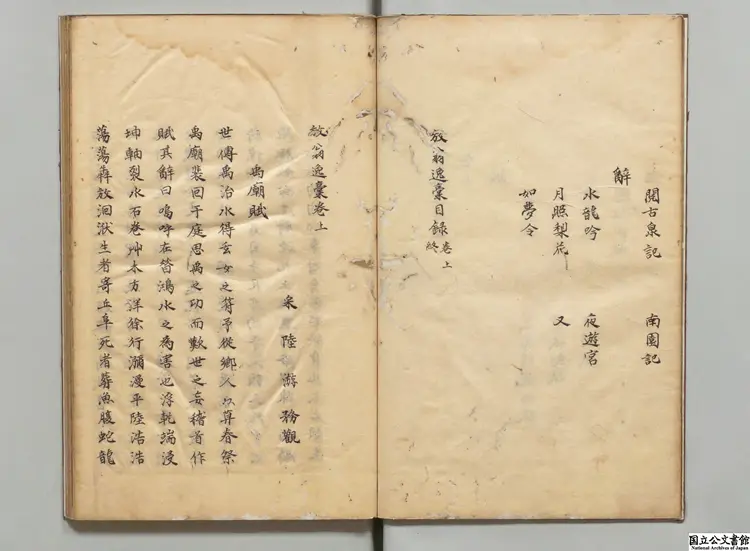 閱古泉記 南園記
辭
水龍吟 夜遊宮
月照梨花 又
如夢令
放翁逸稾目錄卷上終
放翁逸稾卷上
宋 陸游 務觀
禹廟賦
世傳禹治水得玄女之符予從鄉人以暮春祭
禹廟裴回于庭思禹之功而歎世之妄稽首作
賦其辭曰嗚呼在昔鴻水之為害也浮乾端浸
坤軸裂水石卷艸木方洋徐行瀰漫平陸浩浩
蕩蕩奔放洄洑生者寄丘阜死者葬魚腹蛇龍
国立公文書館
National Archives of Japan